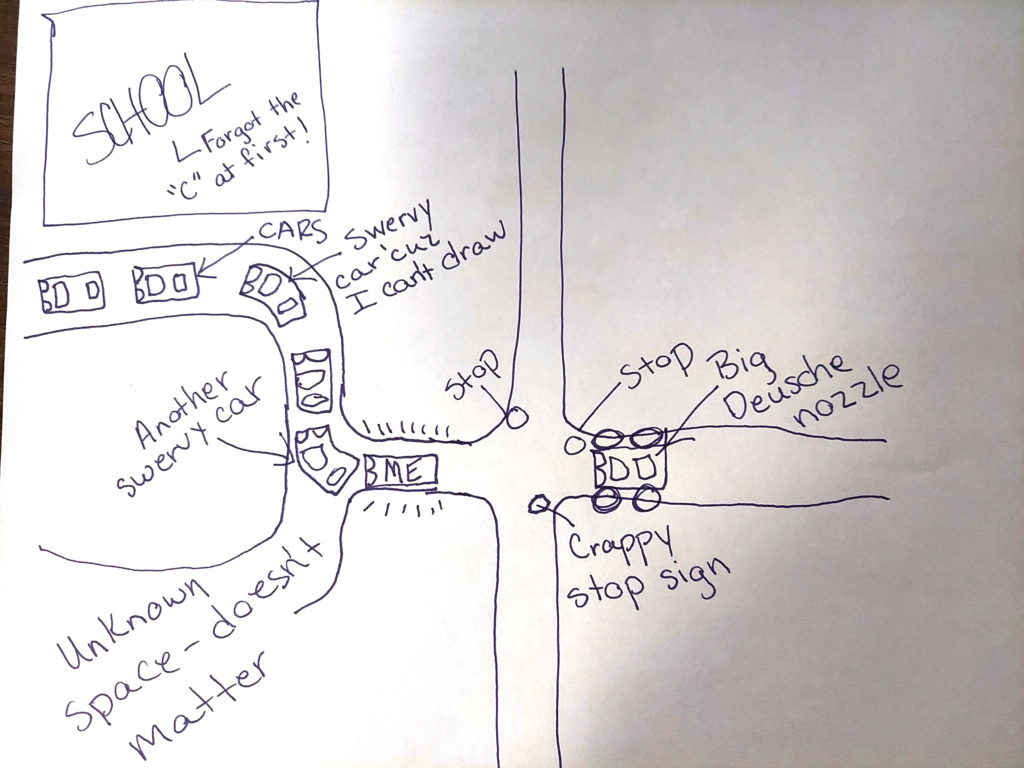 SCHOOL
Forgot the
"C" at first!
CARS
Swervy
car 'cuz
I can't draw
Another
swervy car
ME
Stop
Stop
Big
Deusche
nozzle
Crappy
stop sign
Unknown
Space - doesn't
matter